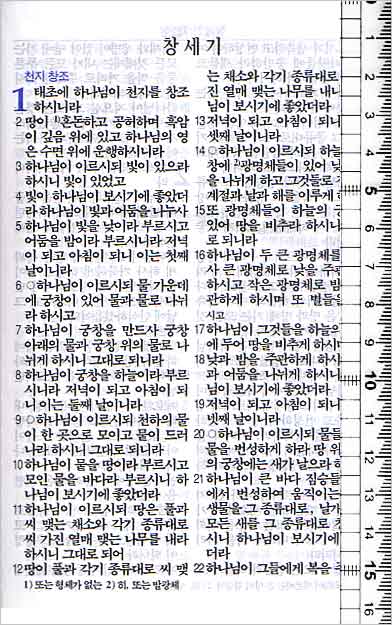 창세기
천지 창조
1 태초에 하나님이 천지를 창조
하시니라
2 땅이 1)혼돈하고 공허하며 흑암
이 깊음 위에 있고 하나님의 영
은 수면 위에 운행하시니라
3 하나님이 이르시되 빛이 있으라
하시니 빛이 있었고
4 빛이 하나님이 보시기에 좋았더
라 하나님이 빛과 어둠을 나누사
5 하나님이 빛을 낮이라 부르시고
어둠을 밤이라 부르시니라 저녁
이 되고 아침이 되니 이는 첫째
날이니라
6 ○하나님이 이르시되 물 가운데
에 궁창이 있어 물과 물로 나뉘
라 하시고
7 하나님이 궁창을 만드사 궁창
아래의 물과 궁창 위의 물로 나
뉘게 하시니 그대로 되니라
8 하나님이 궁창을 하늘이라 부르
시니라 저녁이 되고 아침이 되
니 이는 둘째 날이니라
9 ○하나님이 이르시되 천하의 물
이 한 곳으로 모이고 뭍이 드러
나라 하시니 그대로 되니라
10 하나님이 뭍을 땅이라 부르시고
모인 물을 바다라 부르시니 하
나님이 보시기에 좋았더라
11 하나님이 이르시되 땅은 풀과
씨 맺는 채소와 각기 종류대로
씨 가진 열매 맺는 나무를 내라
하시니 그대로 되어
12 땅이 풀과 각기 종류대로 씨 맺
는 채소와 각기 종류대로
진 열매 맺는 나무를 내니
님이 보시기에 좋았더라
13 저녁이 되고 아침이 되니
셋째 날이니라
14 ○하나님이 이르시되 하늘
창에 2)광명체들이 있어 낮
을 나뉘게 하고 그것들로
계절과 날과 해를 이루게
15 또 광명체들이 하늘의
있어 땅을 비추라 하시니
로 되니라
16 하나님이 두 큰 광명체를
사 큰 광명체로 낮을 주관
하시고 작은 광명체로 밤
관하게 하시며 또 별들을
시고
17 하나님이 그것들을 하늘의
에 두어 땅을 비추게 하시며
18 낮과 밤을 주관하게 하시
과 어둠을 나뉘게 하시니
님이 보시기에 좋았더라
19 저녁이 되고 아침이 되니
넷째 날이니라
20 ○하나님이 이르시되 물들
물을 번성하게 하라 땅 위
의 궁창에는 새가 날으라
21 하나님이 큰 바다 짐승들
에서 번성하여 움직이는
생물을 그 종류대로, 날개
모든 새를 그 종류대로
시니 하나님이 보시기에
더라
22 하나님이 그들에게 복을
1) 또는 형체가 없는 2) 히, 또는 발광체
1
5
10
15